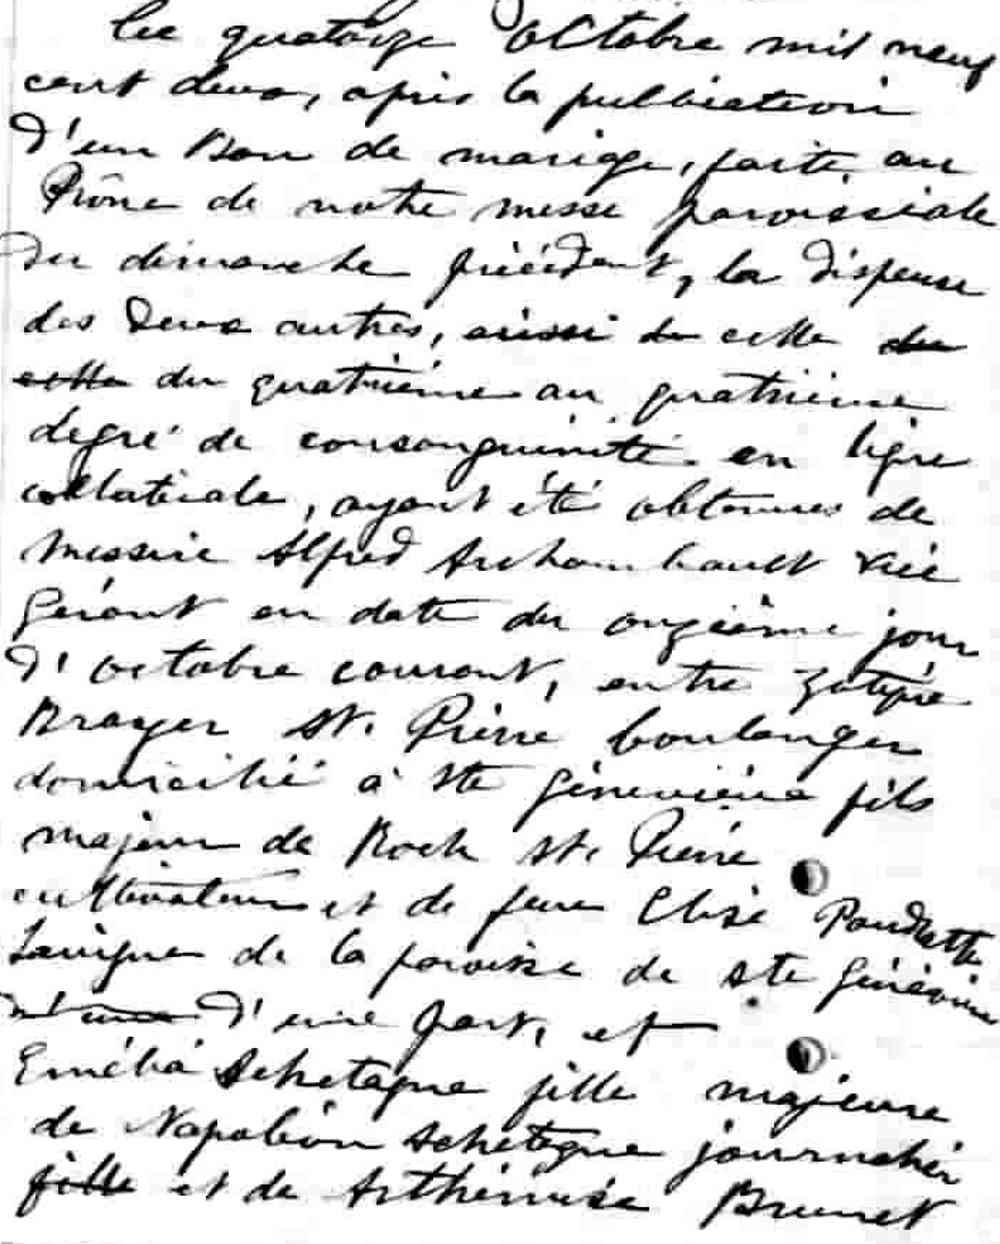 Le quatorze Octobre mil neuf
cent deux, après la publication
d'un Ban de mariage, faite au
Prône de notre messe paroissiale
du dimanche précédent, la dispense
des deux autres, aussi de celle de
celle du quatrième au quatrième
degré de consanguinité en ligne
collatérale, ayant été obtenues de
Messire Alfred Archambault Vice
Gérant en date du onzième jour
d'octobre courant, entre
Brayer St. Pierre boulanger
domicilié à Ste Geneviève fils
majeur de Roch St. Pierre
cultivateur et de feue Elise Paudette
Lavigne de la paroisse de Ste Geneviève
d'une part, et
Emélia Schetagne fille majeure
de Napoléon Schetagne journalier
fille et de Arthémise Brunet